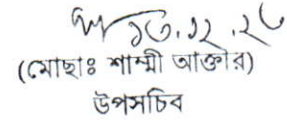 ১৩.১২.২৮
(মোছাঃ শাম্মী আক্তার)
উপসচিব